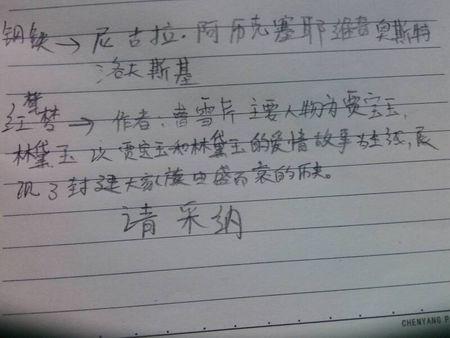 钢铁→尼古拉·阿历克塞耶维奇奥斯特
洛夫斯基
红楼梦→作者:曹雪芹 主要人物为贾宝玉,
林黛玉 以贾宝玉和林黛玉的爱情故事为主线,展
现了封建大家族由盛而衰的历史。
请采纳
CHENYANG P